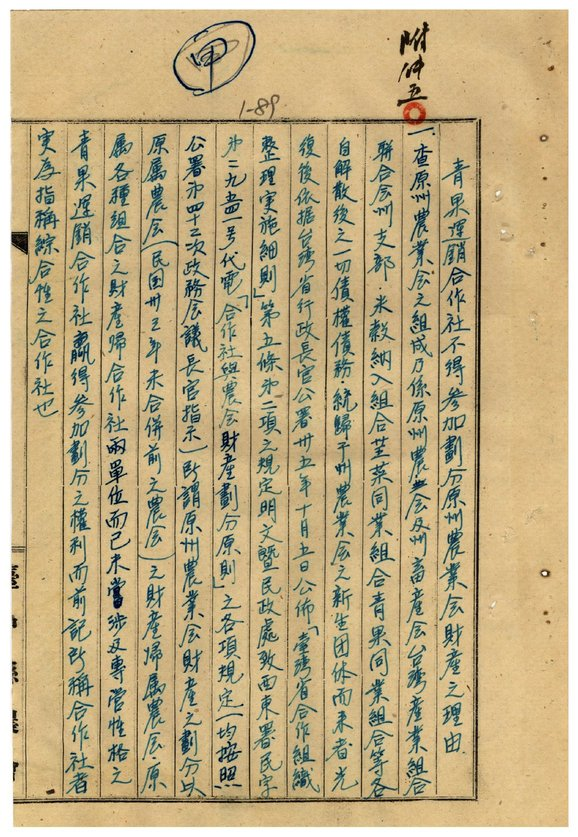 附件五
甲
1-89
青果運銷合作社不得参加劃分原州農業会財產之理由
一查原州農業会之組成乃係原州農会及州畜産会台湾産業組合
聯合会州支部·米穀納入組合芏菜同業組合青果同業組合等各
自解散後之一切債權債務·統歸于州農業会之新生团体而来者光
復後依据台湾省行政長官公署卅五年十月五日公佈「臺湾省合作組織
整理実施細則」第五條第二項之規定明文暨民政處致西東署民字
第二九五四一号代電「合作社與農会財產劃分原則」之各項規定一均按照
公署第四十三次政務会議長官指示)所謂原州農業会財產之劃分以
原属農会(民国卅三年未合併前之農会)之財產歸属農会·原
属各種組合之財產歸合作社兩單位而已未嘗涉及專営性格之
青果運銷合作社贏得参加劃分之權利而前記所稱合作社者
実為指稱綜合性之合作社也